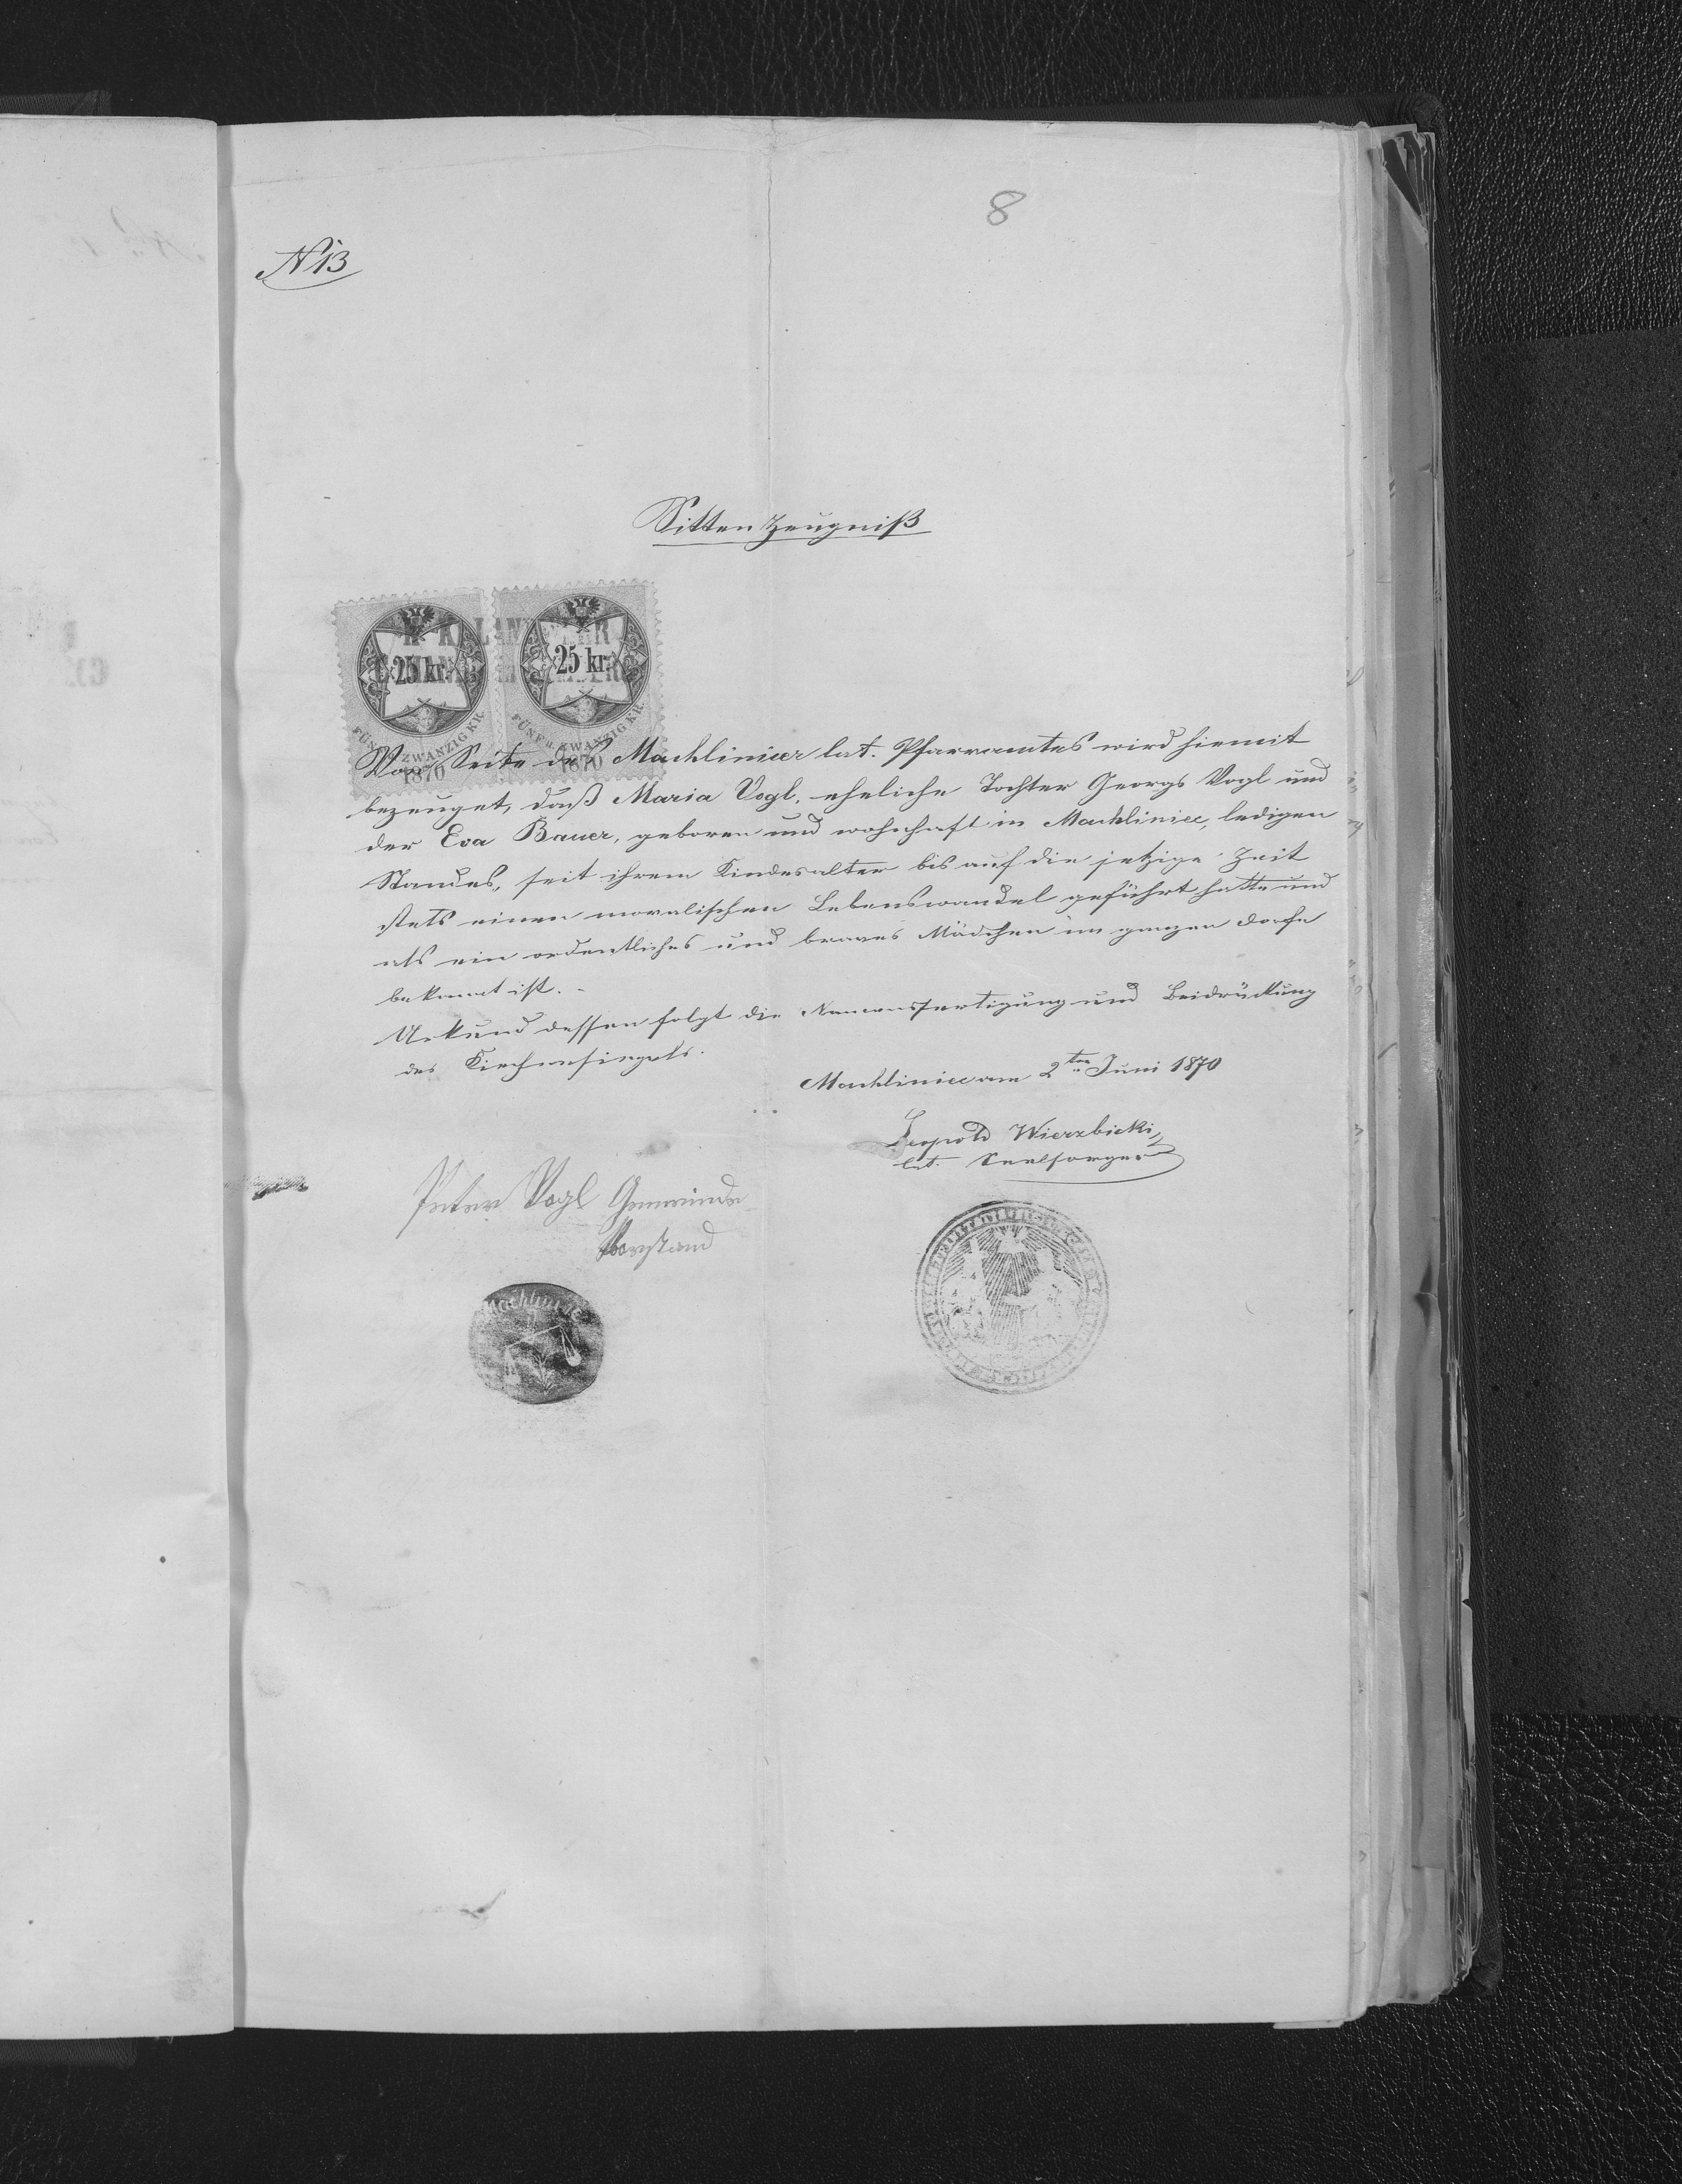 8
N 13
Sittenzeugniß
25 kr.
25 kr.
FÜNF u. ZWANZIG KR.
FÜNF u. ZWANZIG KR.
1870
1870
Von Seite des Machliniecer lat. Pfarramtes wird hiemit
bezeuget, daß Maria Vogl, eheliche Tochter Georgs Vogl und
der Eva Bauer, geboren und wohnhaft in Machliniec, ledigen
Standes, seit ihrem Kindesalter bis auf die jetzige Zeit
stets einen moralischen Lebenswandel geführt hatte und
als ein ordentliches und braves Mädchen im ganzen Dorfe
bekannt ist.-
Urkund dessen folgt die Namensfertigung und Beidrückung
des Kirchensiegels.
Machliniec am 2ten Juni 1870
Leopold Wierzbicki
lat. Seelsorger
Peter Vogl Gemeinde
Vorstand
Machliniec